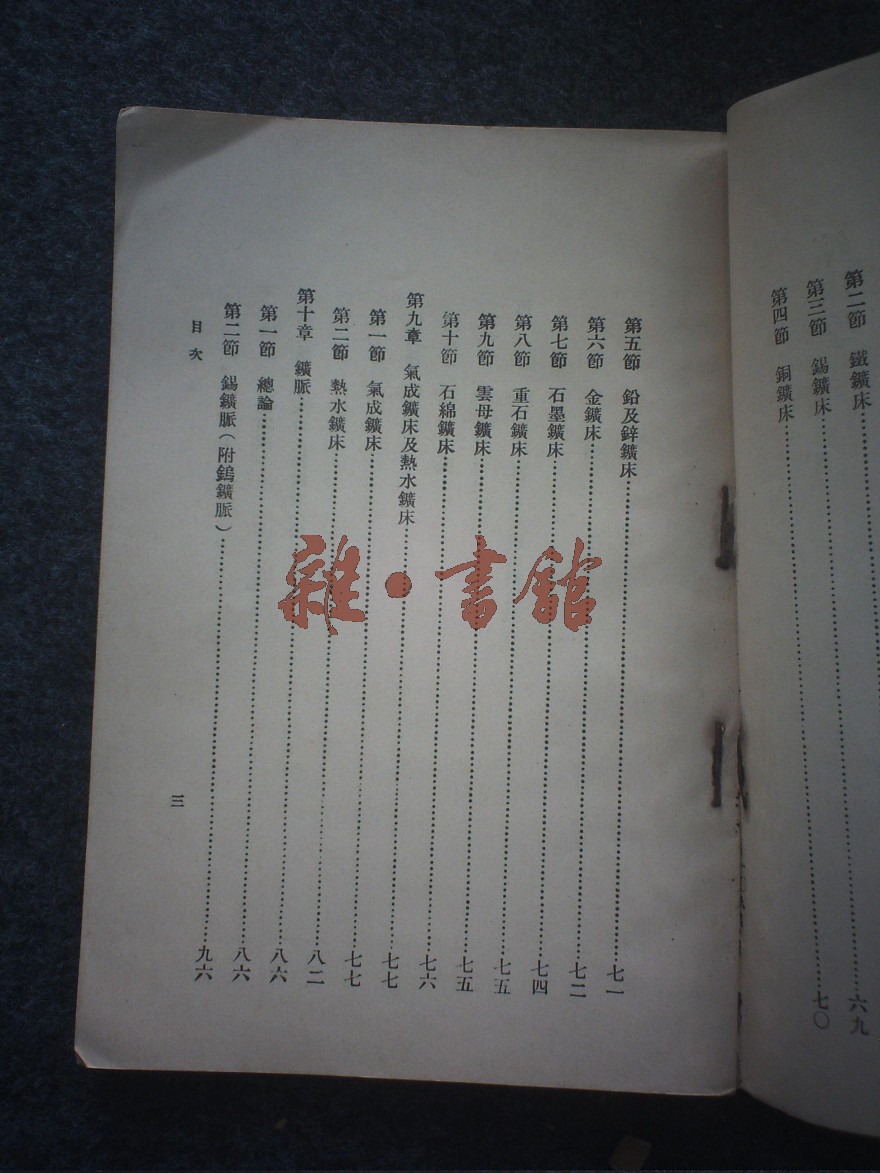 第二節 鐵鑛床……六九
第三節 錫鑛床……七〇
第四節 銅鑛床……
第五節 鉛及鋅鑛床……七一
第六節 金鑛床……七二
第七節 石墨鑛床……七四
第八節 重石鑛床……七五
第九節 雲母鑛床……七五
第十節 石綿鑛床……七六
第九章 氣成鑛床及熱水鑛床……七七
第一節 氣成鑛床……七七
第二節 熱水鑛床……八二
第十章 鑛脈……八六
第一節 總論……八六
第二節 錫鑛脈(附鎢鑛脈)……九六
目次
三
雜·書館